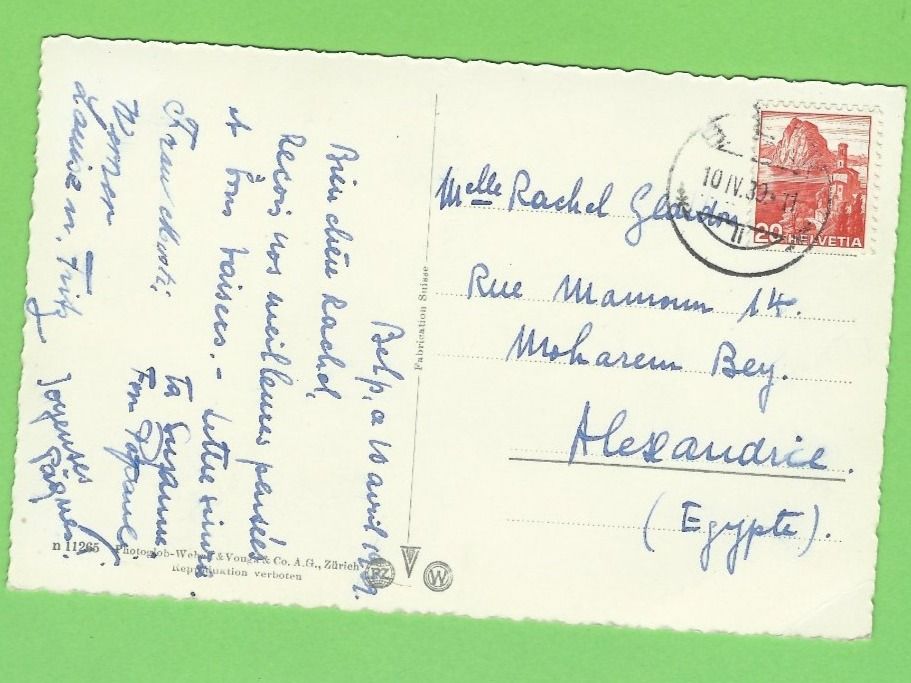 Belp, a 10 avril 1939.
Bien chère Rachel,
Reçois nos meilleures pensées
et bons baisers. - Lettre suivra.
Ta Suzanne
Ton
Werner
Louise n. Fritz
Joyeuses
Pâques!
Melle Rachel
Rue Mamoun 14.
Moharem Bey.
Alexandrie.
(Egypte).
10 IV. 39. 11
20 HELVETIA
Fabrication Suisse
n 11265 Photoglob-Wehrli & Vouga & Co. A.G., Zürich
Reproduktion verboten
PZ
V
W